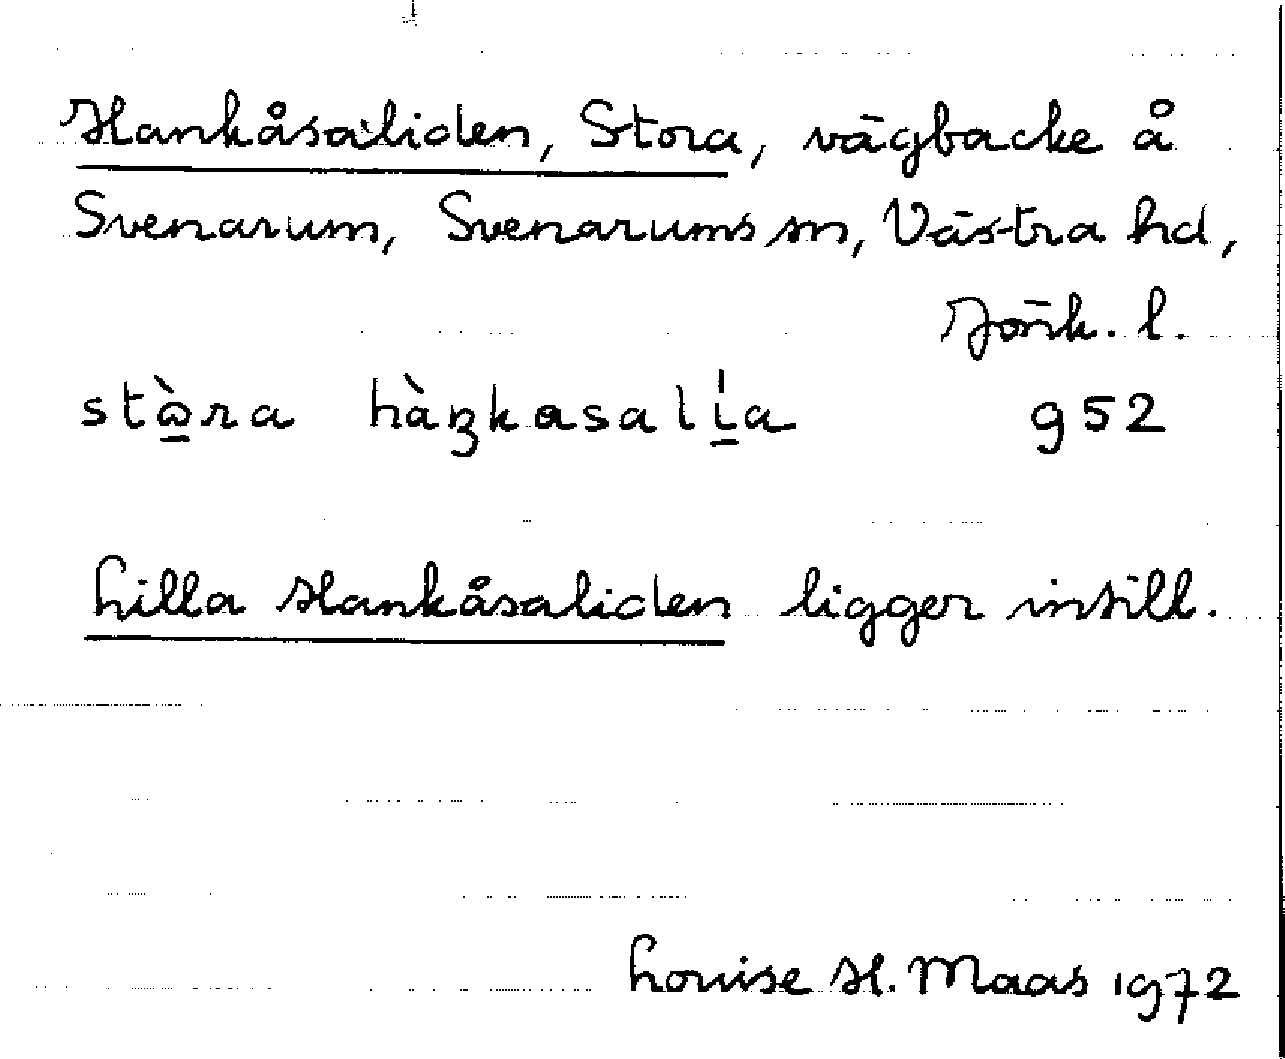 Hankåsaliden, Stora, vägbacke å
Svenarum, Svenarums sn, Västra hd,
Jönk. l.
952
Lilla Hankåsaliden ligger intill.
Louise H. Maas 1972